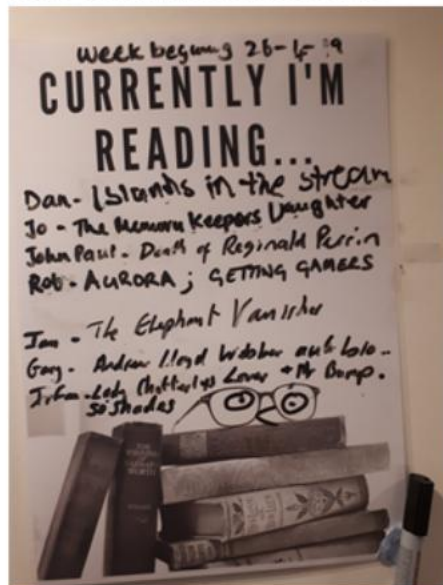 week begining 26-4-19
CURRENTLY I'M
READING...
Dan - Islands in the stream
Jo - The Memory Keepers Daughter
John Paul - Death of Reginald Perrin
Rob - AURORA ; GETTING GAMERS
Jan - The Elephant Vanishes
Gary - Andrew Lloyd Webber auto bio..
Lady Chatterlys Lover + Mr Bump.
50 shades